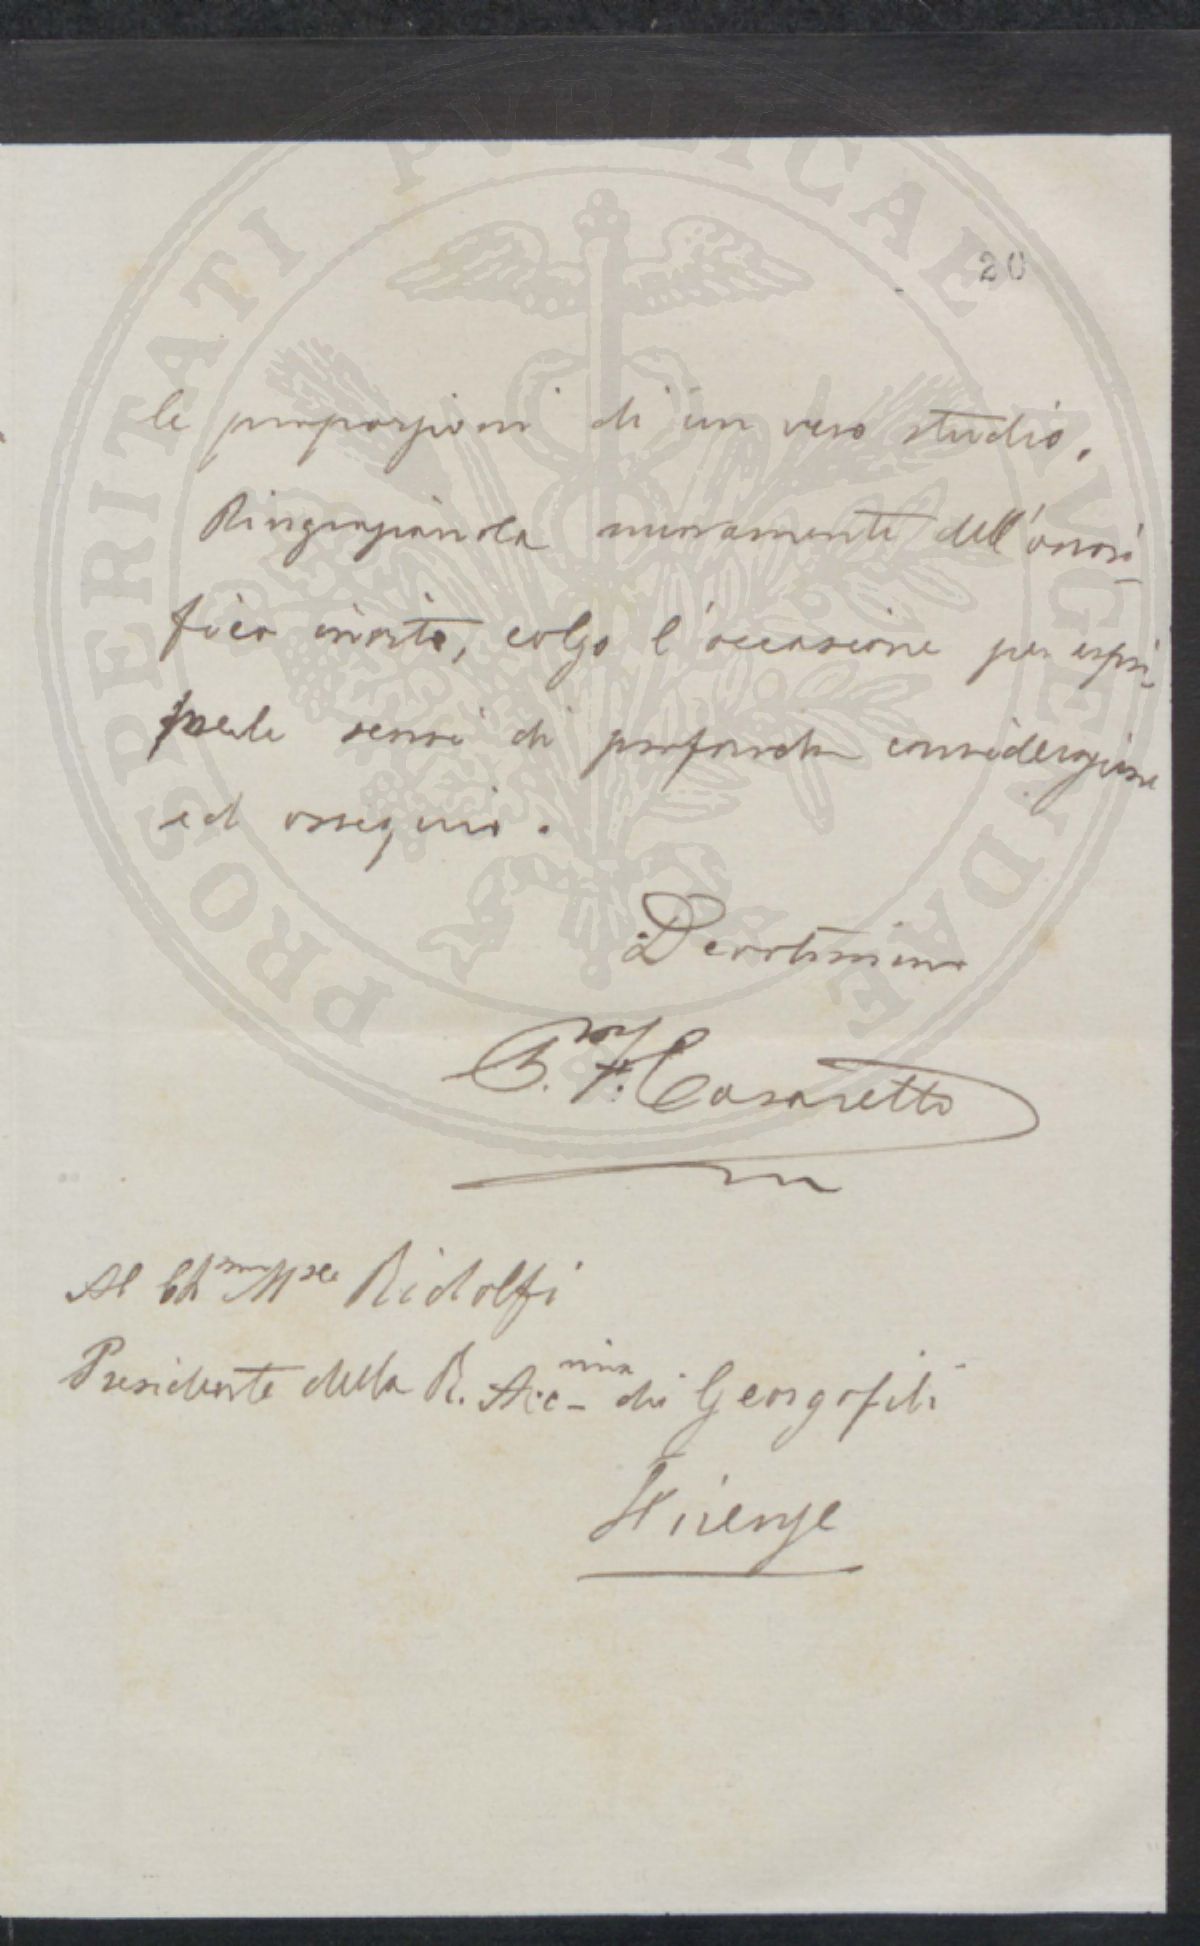 20
le proporzioni di un vero studio.
Ringraziandola nuovamente dell'onori-
fico invito, colgo l'occasione per espri-
merle sensi di profonda considerazione
ed ossequio.
Devotissimo
P. F. Casaretto
Al Ch.mo Mse Ridolfi
Presidente della R. Acc-mia dei Georgofili
Firenze
PROSPERITATI PVBLICAE AVGENDAE